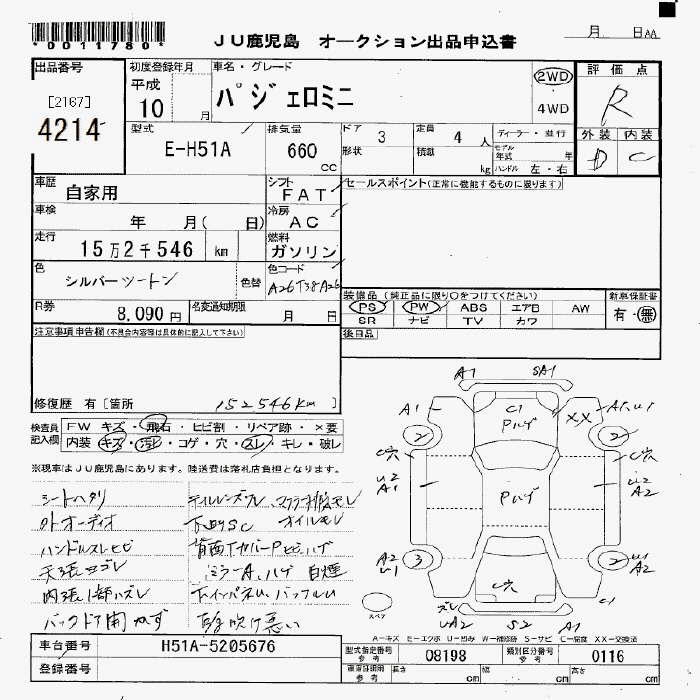 *0011780*
JU鹿児島 オークション出品申込書
月 日AA
出品番号
[2167]
4214
初度登録年月
平成
10 月
車名・グレード
パジェロミニ
2WD
4WD
評価点
R
外装 内装
D C
型式
E-H51A
排気量
660 CC
ドア 3
形状
定員 4 人
積載 kg
ディーラー・並行
モデル年式 年
ハンドル 左・右
車歴
自家用
シフト
FAT
セールスポイント(正常に機能するものに限ります)
車検
年 月( 日)
冷房
AC
走行
15万2千546 km
燃料
ガソリン
色
シルバーツートン
色替
色コード
A26T38A26
R券
8,090円
名変通知期限
月 日
装備品(純正品に限り○をつけてください)
PS PW ABS エアB AW
SR ナビ TV カワ
新車保証書
有・無
後日品
注意事項申告欄(不具合内容等は具体的に記入して下さい)
修復歴 有[箇所 152546km]
検査員記入欄
FW キズ・飛石・ヒビ割・リペア跡・×要
内装 キズ・汚レ・コゲ・穴・スレ・キレ・破レ
※現車はJU鹿児島にあります。陸送費は落札店負担となります。
シートヘタリ
外オーディオ
ハンドルスレヒビ
天張ヨゴレ
内張1部ハズレ
バックドア開かず
下廻りSC オイルモレ
ミラーA、ハゲ 白煙
A1 SA1
A1 C1 Pハゲ XX A1、U1
2 2
C穴 C穴
U2 A1 Pハゲ U2 A2
A2 U1 3 2 U1 A2
C穴
スペア
ズレ C1
UA2 S2 A1
A-キズ E-エクボ U-凹み W-補修跡 S-サビ C-腐食 XX-交換済
車台番号
H51A-5205676
登録番号
型式指定番号 参考 08198
類別区分番号 参考 0116
車両明細 参考
長さ cm 幅 cm 高さ cm